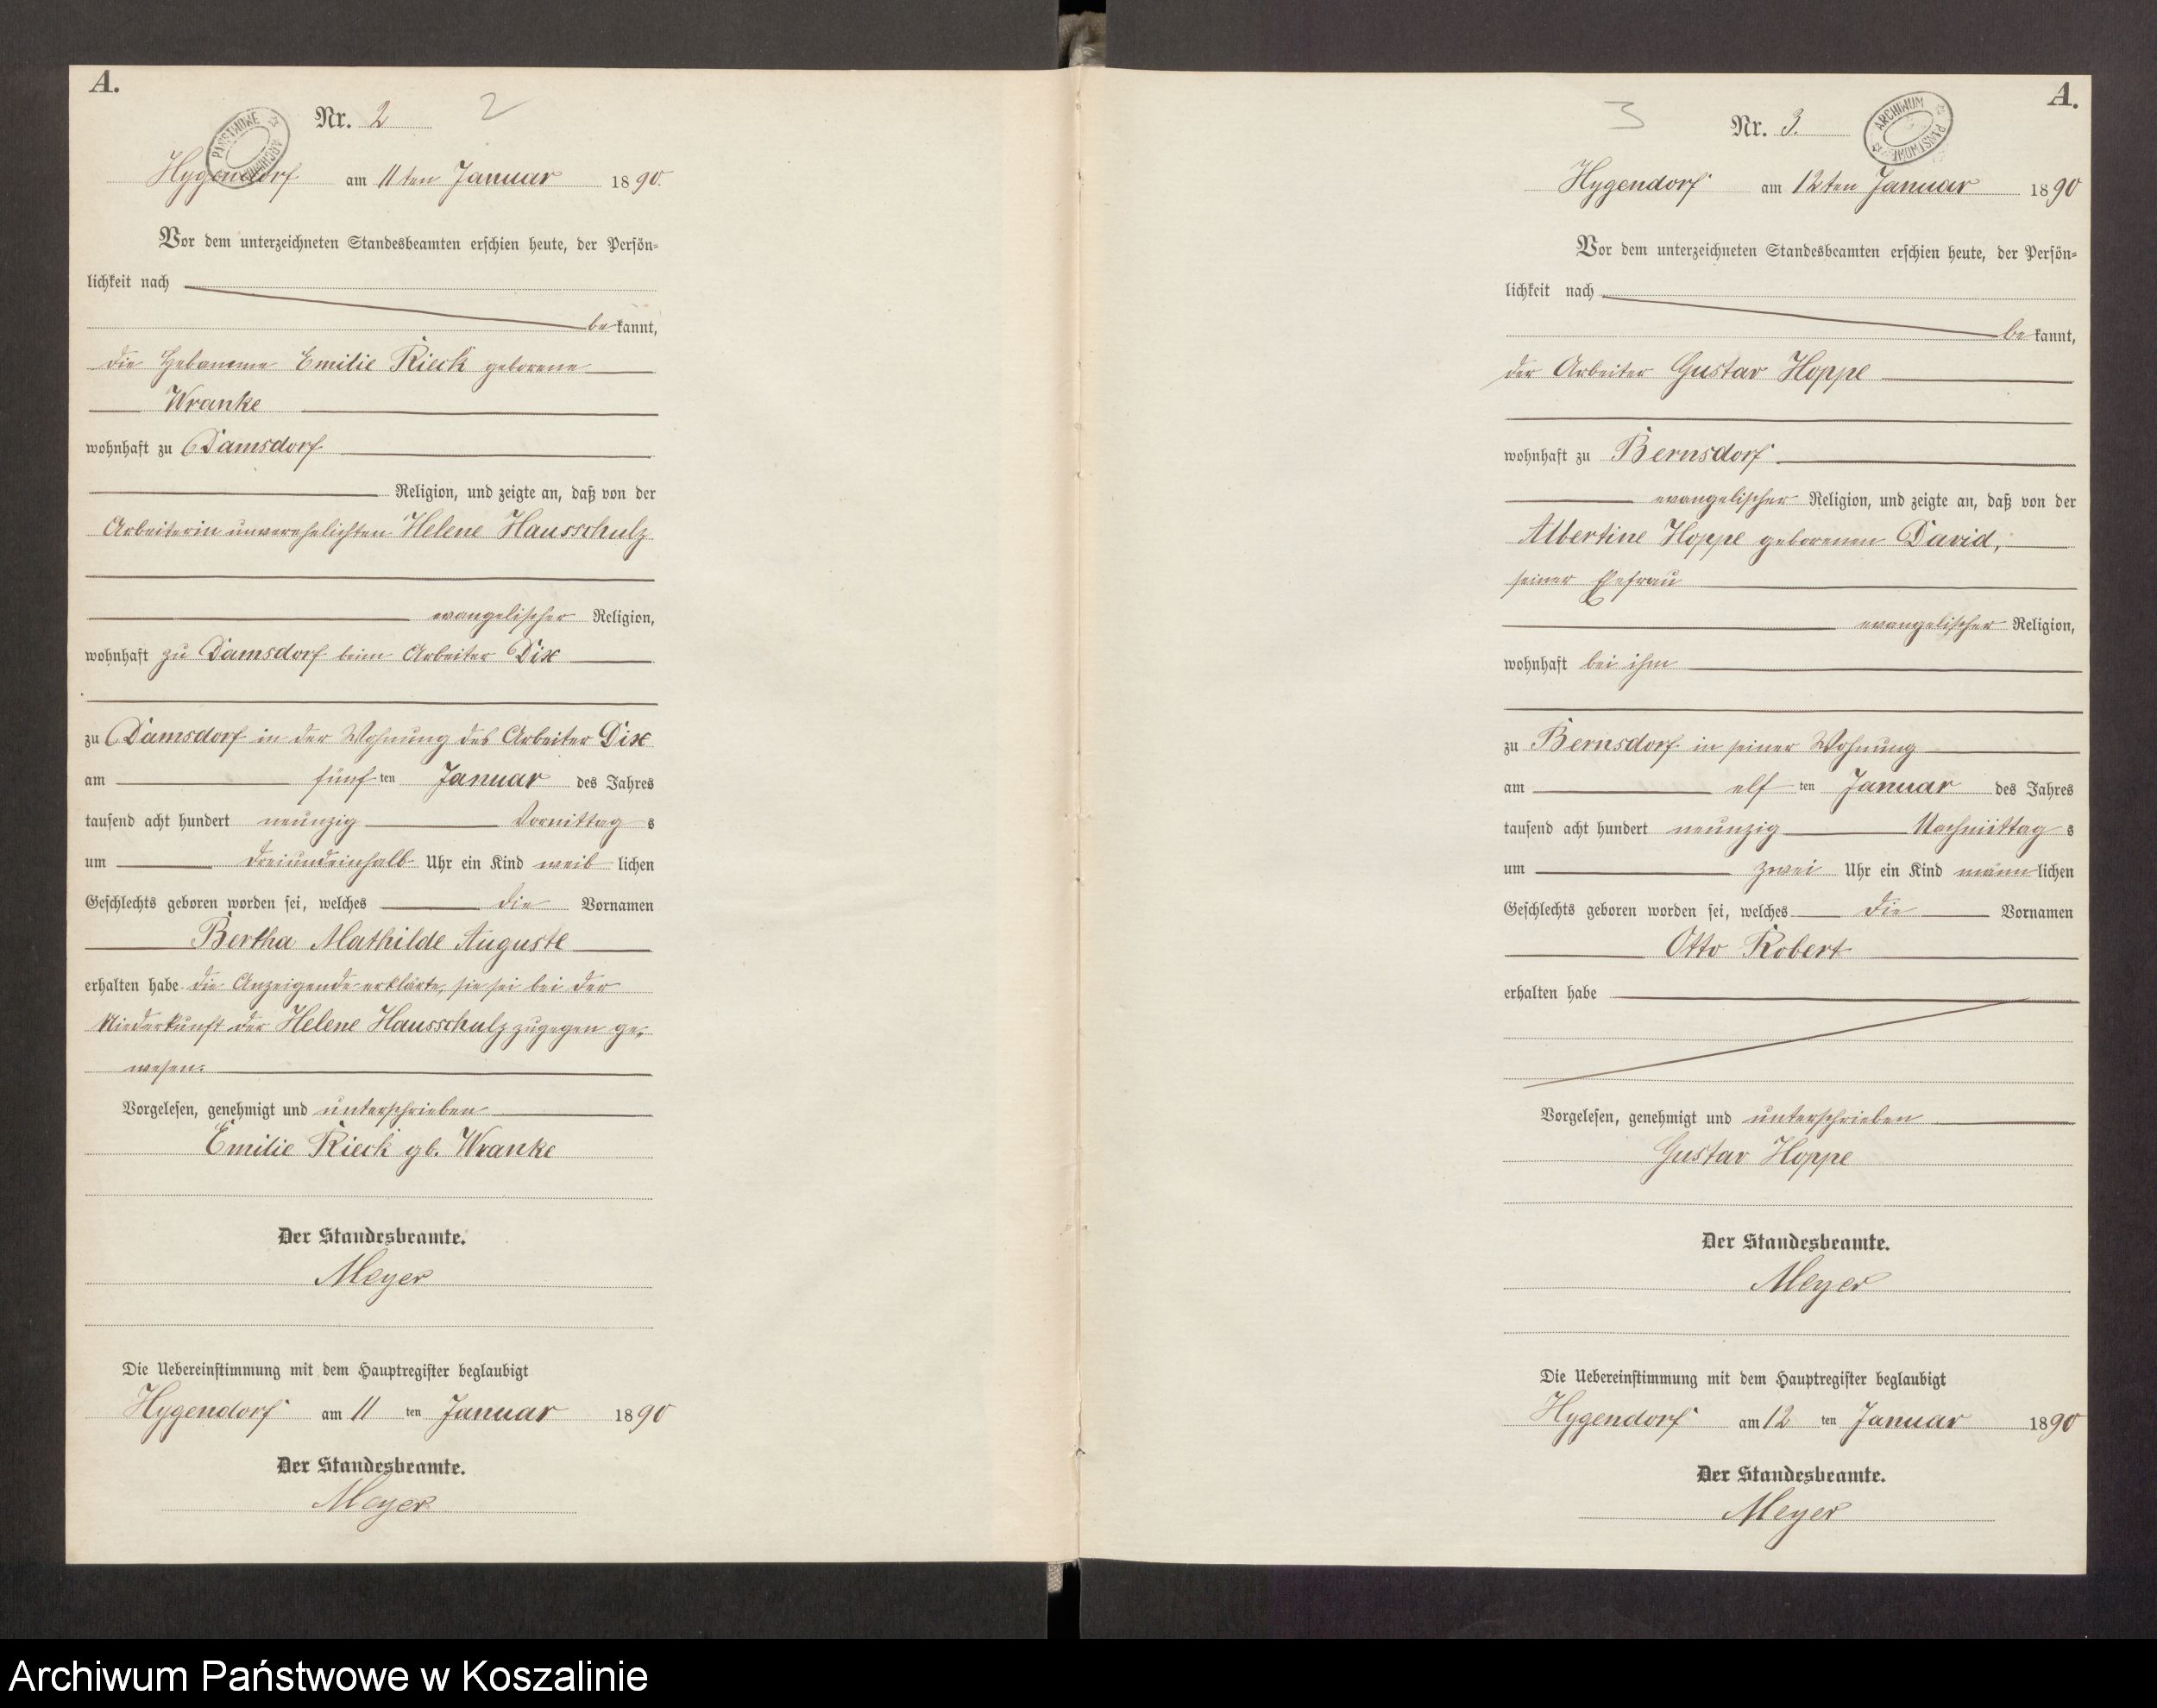 A.
Nr. 2 2
PAŃSTWOWE ARCHIWUM
Hygendorf am 11ten Januar 1890.
Vor dem unterzeichneten Standesbeamten erschien heute, der Persön-
lichkeit nach
bekannt,
die Hebamme Emilie Rieck geborene
Wranke
wohnhaft zu Damsdorf
Religion, und zeigte an, daß von der
Arbeiterin unverehelichten Helene Hausschulz
evangelischer Religion,
wohnhaft zu Damsdorf beim Arbeiter Dix
zu Damsdorf in der Wohnung des Arbeiter Dix
am fünften Januar des Jahres
tausend acht hundert neunzig Vormittags
um dreiundeinhalb Uhr ein Kind weiblichen
Geschlechts geboren worden sei, welches die Vornamen
Bertha Mathilde Auguste
erhalten habe die Anzeigende erklärte, sie sei bei der
Niederkunft der Helene Hausschulz zugegen ge-
wesen.
Vorgelesen, genehmigt und unterschrieben
Emilie Rieck gb. Wranke
Der Standesbeamte.
Meyer
Die Uebereinstimmung mit dem Hauptregister beglaubigt
Hygendorf am 11ten Januar 1890
Der Standesbeamte.
Meyer
A.
3 Nr. 3.
ARCHIWUM PAŃSTWOWE
Hygendorf am 12ten Januar 1890
Vor dem unterzeichneten Standesbeamten erschien heute, der Persön-
lichkeit nach
bekannt,
der Arbeiter Gustav Hoppe
wohnhaft zu Bernsdorf
evangelischer Religion, und zeigte an, daß von der
Albertine Hoppe geborenen David,
seiner Ehefrau
evangelischer Religion,
wohnhaft bei ihm
zu Bernsdorf in seiner Wohnung
am elften Januar des Jahres
tausend acht hundert neunzig Nachmittags
um zwei Uhr ein Kind männlichen
Geschlechts geboren worden sei, welches die Vornamen
Otto Robert
erhalten habe
Vorgelesen, genehmigt und unterschrieben
Gustav Hoppe
Der Standesbeamte.
Meyer
Die Uebereinstimmung mit dem Hauptregister beglaubigt
Hygendorf am 12ten Januar 1890
Der Standesbeamte.
Meyer
Archiwum Państwowe w Koszalinie